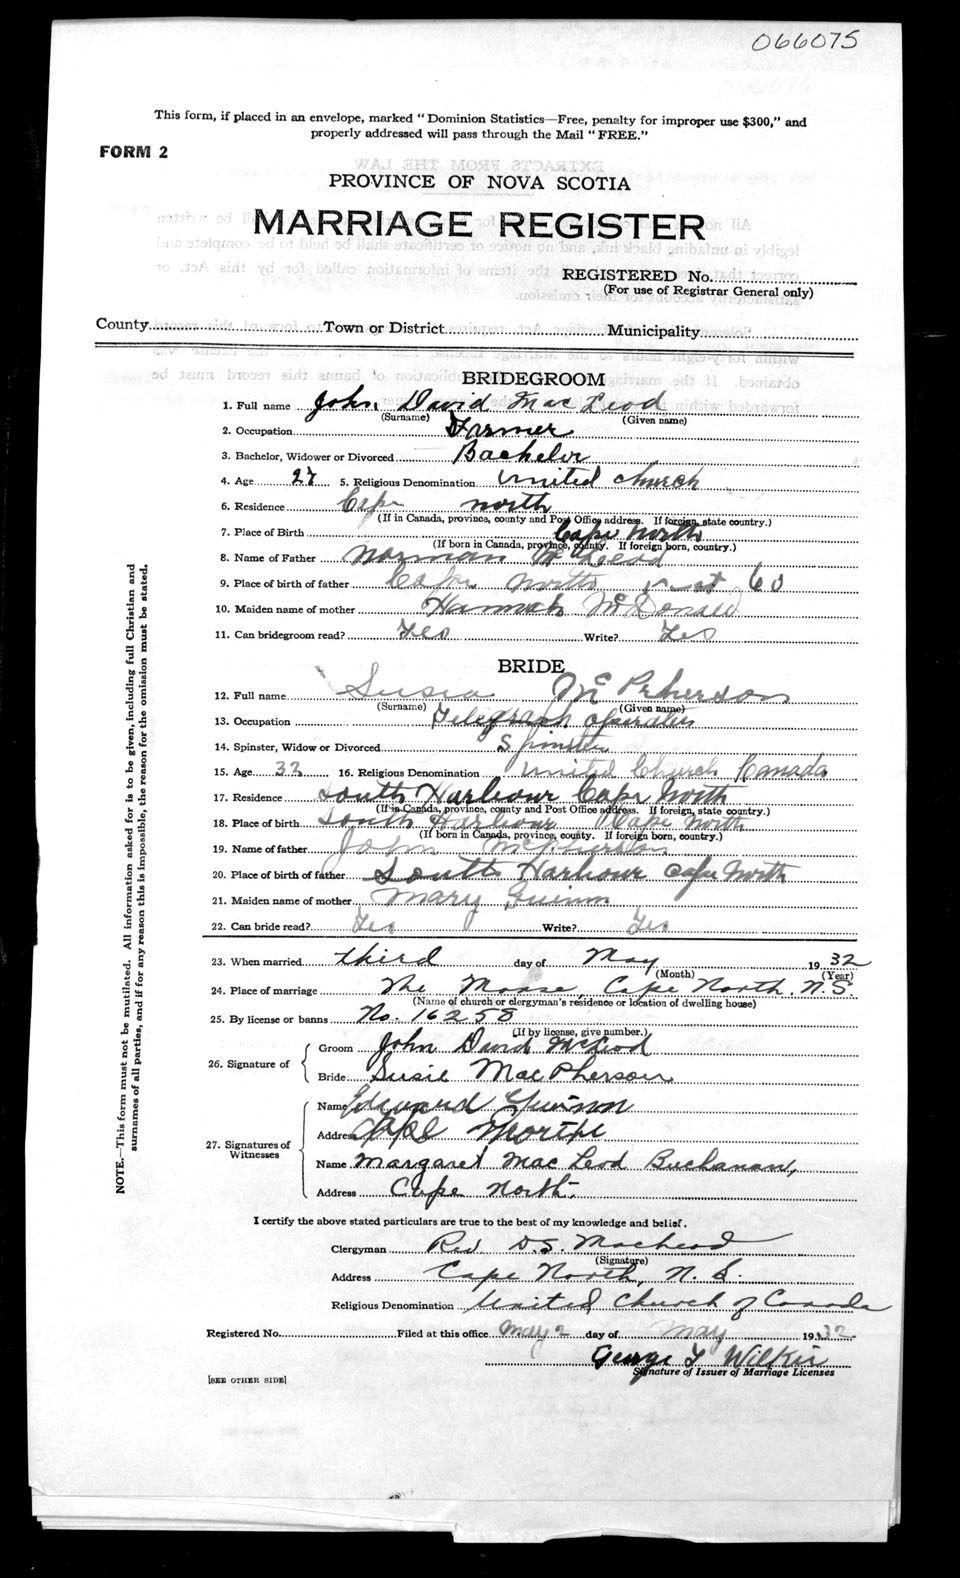 066075
This form, if placed in an envelope, marked "Dominion Statistics—Free, penalty for improper use $300," and
properly addressed will pass through the Mail "FREE."
FORM 2
PROVINCE OF NOVA SCOTIA
MARRIAGE REGISTER
REGISTERED No.
(For use of Registrar General only)
County Town or District Municipality
BRIDEGROOM
1. Full name John David MacLeod
(Surname) (Given name)
2. Occupation Farmer
3. Bachelor, Widower or Divorced Bachelor
4. Age 27 5. Religious Denomination United church
6. Residence Cape north
(If in Canada, province, county and Post Office address. If foreign, state country.)
7. Place of Birth Cape North
(If born in Canada, province, county. If foreign born, country.)
8. Name of Father Norman McLeod
9. Place of birth of father Cape North
10. Maiden name of mother Hannah McDonald
11. Can bridegroom read? Yes Write? Yes
BRIDE
12. Full name Susia McPherson
(Surname) (Given name)
13. Occupation Telegraph operator
14. Spinster, Widow or Divorced Spinster
15. Age 33 16. Religious Denomination United Church Canada
17. Residence South Harbour Cape North
(If in Canada, province, county and Post Office address. If foreign, state country.)
18. Place of birth South Harbour Cape North
(If born in Canada, province, county. If foreign born, country.)
19. Name of father John McPherson
20. Place of birth of father South Harbour Cape North
21. Maiden name of mother Mary Guinn
22. Can bride read? Yes Write? Yes
23. When married third day of May 1932
(Month) (Year)
24. Place of marriage The Manse, Cape North, N.S.
(Name of church or clergyman's residence or location of dwelling house)
25. By license or banns No. 16258
(If by license, give number.)
26. Signature of
Groom John David McLeod
Bride Susie MacPherson
27. Signatures of
Witnesses
Name Edward Guinn
Address Cape North
Name Margaret MacLeod Buchanan,
Address Cape North.
I certify the above stated particulars are true to the best of my knowledge and belief.
Clergyman Rev D.S. MacLeod
(Signature)
Address Cape North, N.S.
Religious Denomination United Church of Canada
Registered No. Filed at this office May 2 day of May 1932
George Wilkie
Signature of Issuer of Marriage Licenses
[SEE OTHER SIDE]
NOTE.—This form must not be mutilated. All information asked for is to be given, including full Christian and
surnames of all parties, and if for any reason this is impossible, the reason for the omission must be stated.